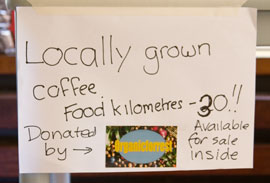 Locally grown
coffee.
Food kilometres - 30!!
Donated
by →
Organicforrest
Available
for sale
inside